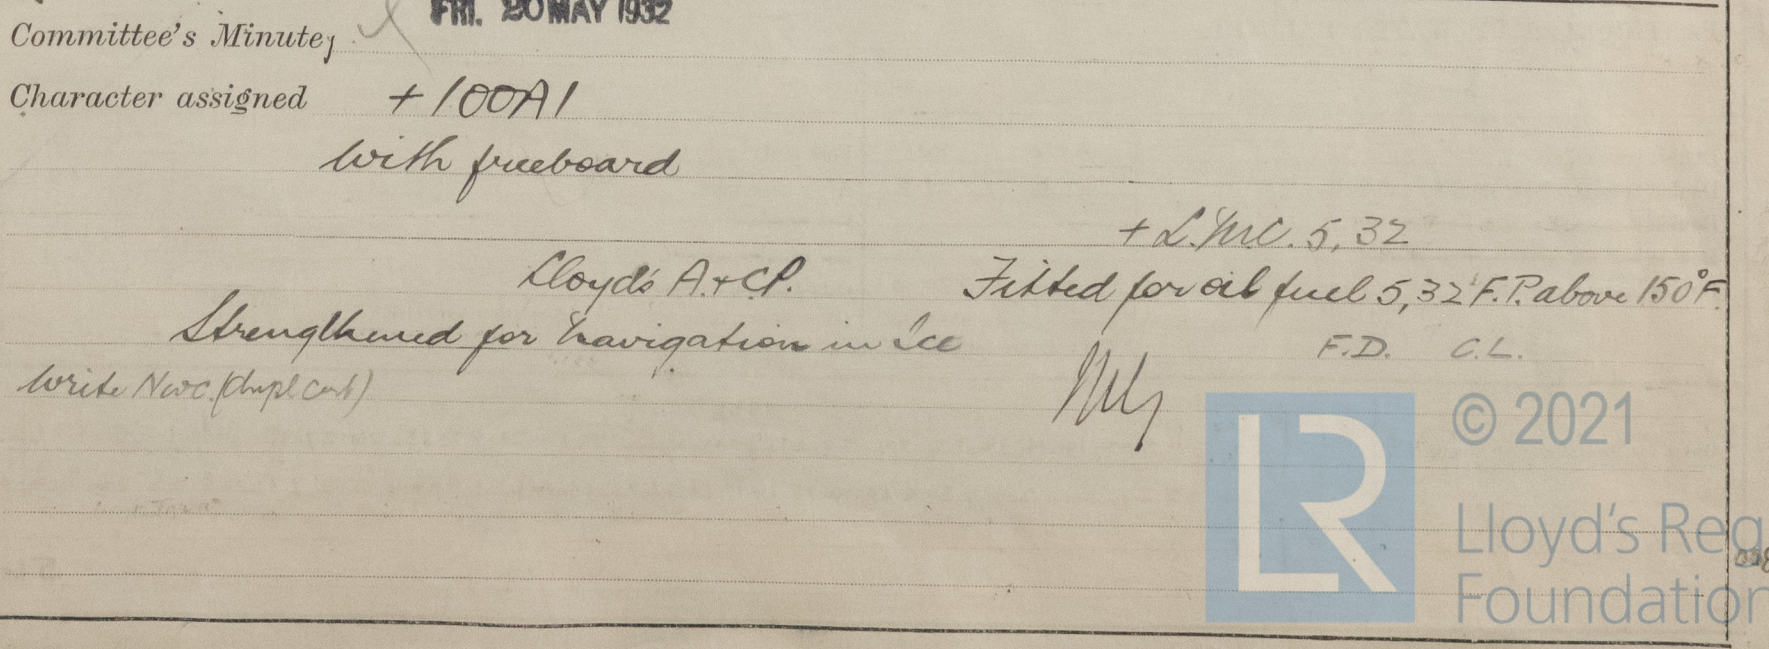 FRI. 20 MAY 1932
Committee's Minute
Character assigned + 100A1
with freeboard
+ L.M.C. 5,32
Lloyd's A.&C.P.
Fitted for oil fuel 5,32 F.P. above 150°F.
Strengthened for navigation in Ice
F.D. C.L.
Write Nwc. (dupl cert)
© 2021
LR
Lloyd's Reg
Foundation